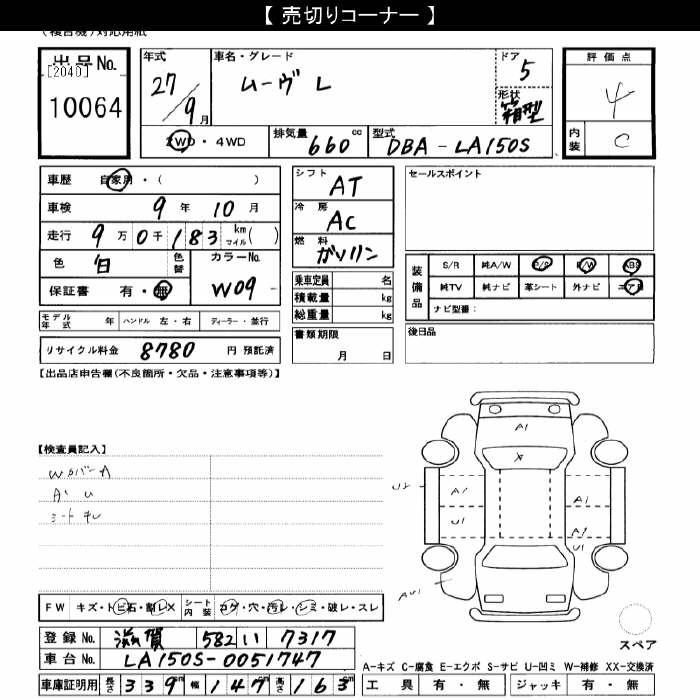 【 売切りコーナー 】
(複合機)対応用紙
出品No.
[2040]
10064
年式
27/9月
車名・グレード
ムーヴ L
ドア
5
形状
箱型
評価点
4
内装
C
2WD・4WD
排気量 660cc
型式 DBA-LA150S
車歴 自家用・( )
車検 9年10月
走行 9万0千183 km マイル( )
色 白 色替 カラーNo. W09
保証書 有・無
モデル年式 年 ハンドル 左・右 ディーラー・並行
リサイクル料金 8780 円 預託済
シフト
AT
冷房
AC
燃料
ガソリン
乗車定員 名
積載量 kg
総重量 kg
書類期限
月 日
セールスポイント
装備品
S/R 純A/W P/S P/W ABS
純TV 純ナビ 革シート 外ナビ エアB
ナビ型番:
後日品
【出品店申告欄(不良箇所・欠品・注意事項等)】
【検査員記入】
WカバーA
A' U
シート キレ
A1
X
U2
A1
A1
U1
A1
U1
AU1
FW キズ・トビ石・割レX シート内装 コゲ・穴・汚レ・シミ・破レ・スレ
登録No. 滋賀 582 い 7317
車台No. LA150S-0051747
車庫証明用 長さ 339cm 幅 147cm 高さ 163cm
スペア
A-キズ C-腐食 E-エクボ S-サビ U-凹ミ W-補修 XX-交換済
工具 有・無 ジャッキ 有・無